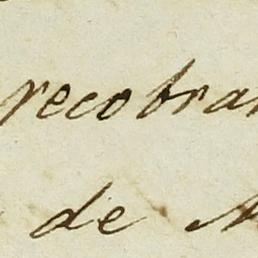 recobrar
de